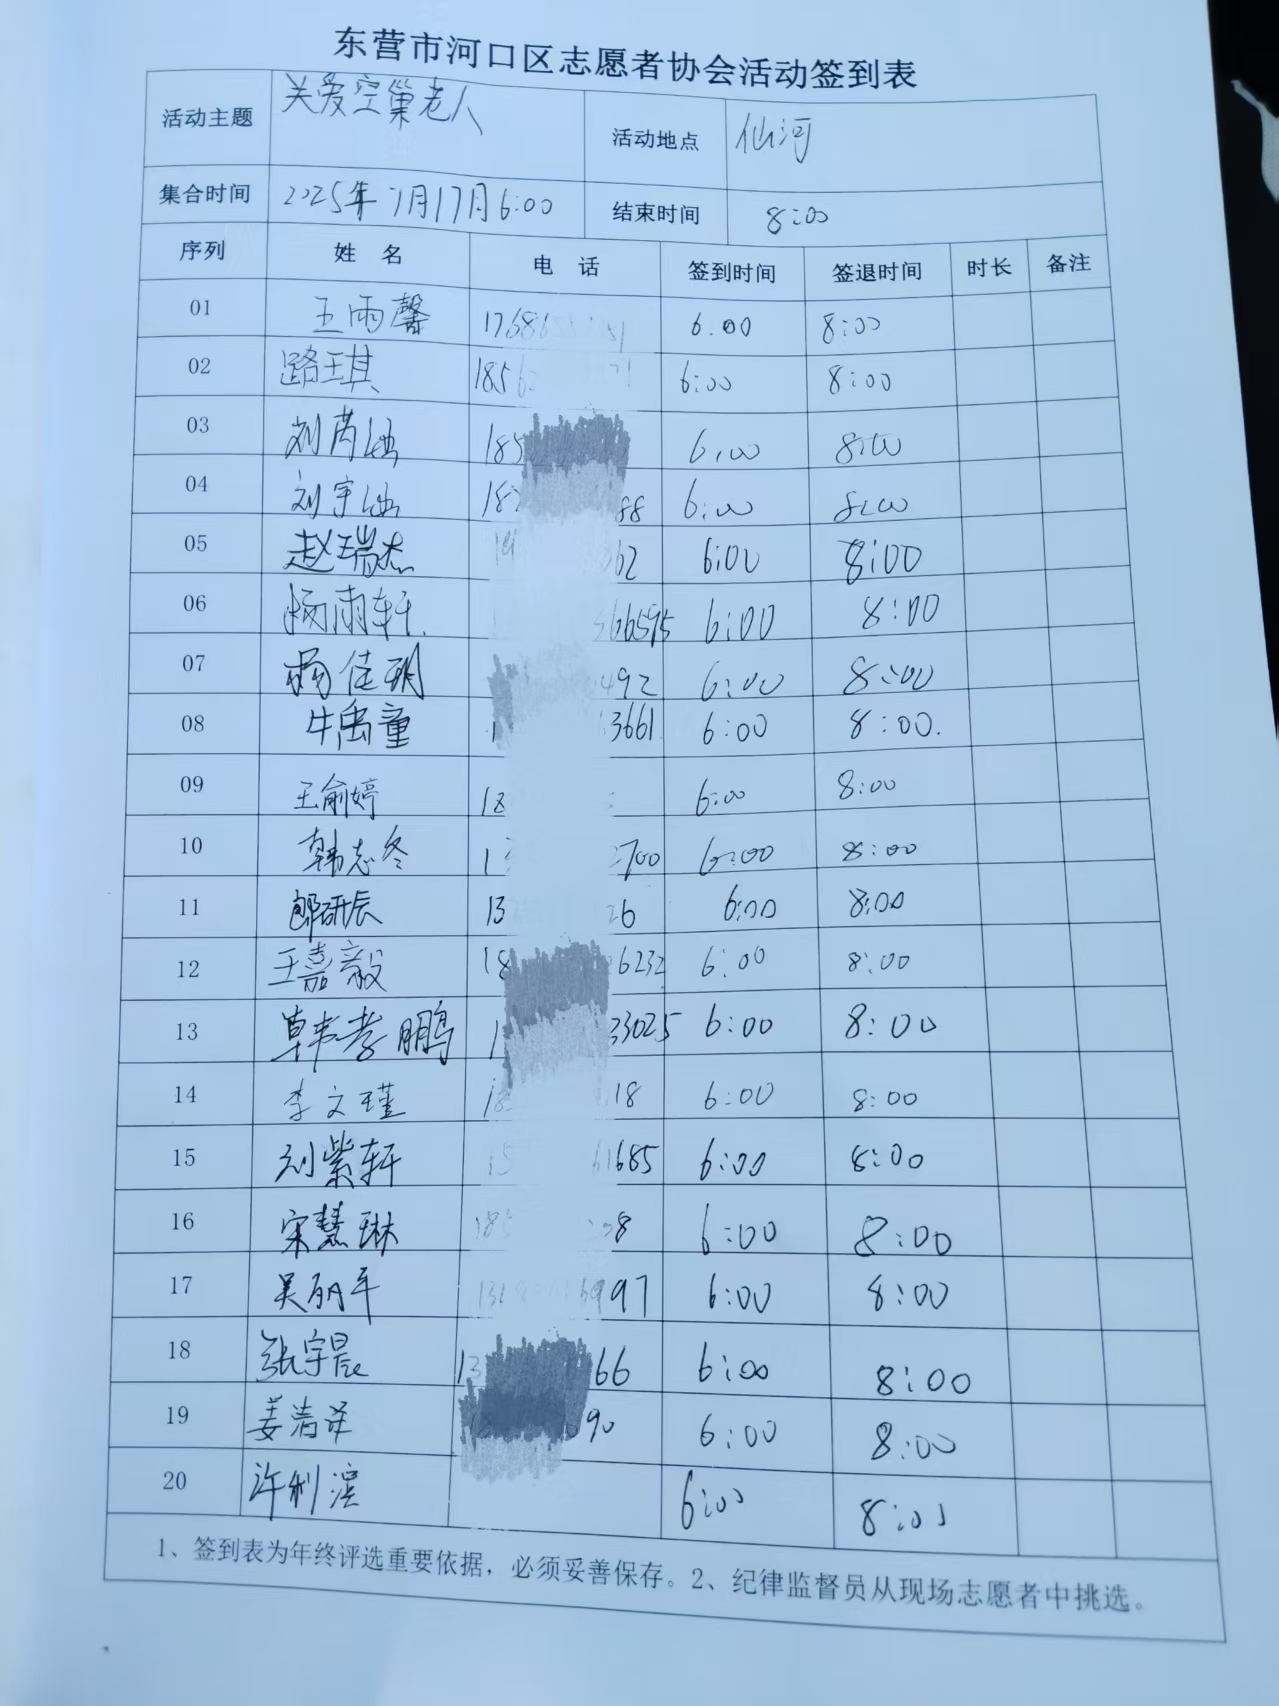 东营市河口区志愿者协会活动签到表
活动主题 关爱空巢老人 活动地点 仙河
集合时间 2025年7月17日6:00 结束时间 8:00
序列 姓名 电话 签到时间 签退时间 时长 备注
01 王雨馨 6:00 8:00
02 路琪 6:00 8:00
03 刘芮涵 185 6:00 8:00
04 刘宇涵 88 6:00 8:00
05 赵瑞杰 362 6:00 8:00
06 杨雨轩 366595 6:00 8:00
07 杨佳玥 492 6:00 8:00
08 牛禹童 3661 6:00 8:00.
09 王俞婷 18 6:00 8:00
10 韩志冬 1 2700 6:00 8:00
11 郎研辰 13 26 6:00 8:00
12 王嘉毅 18 6232 6:00 8:00
13 韩孝鹏 1 33025 6:00 8:00
14 李文瑾 18 118 6:00 8:00
15 刘紫轩 15 61685 6:00 8:00
16 宋慧琳 185 08 6:00 8:00
17 吴丽平 997 6:00 8:00
18 张宇晨 13 66 6:00 8:00
19 姜浩泽 090 6:00 8:00
20 许利滨 6:00 8:00
1、签到表为年终评选重要依据，必须妥善保存。2、纪律监督员从现场志愿者中挑选。